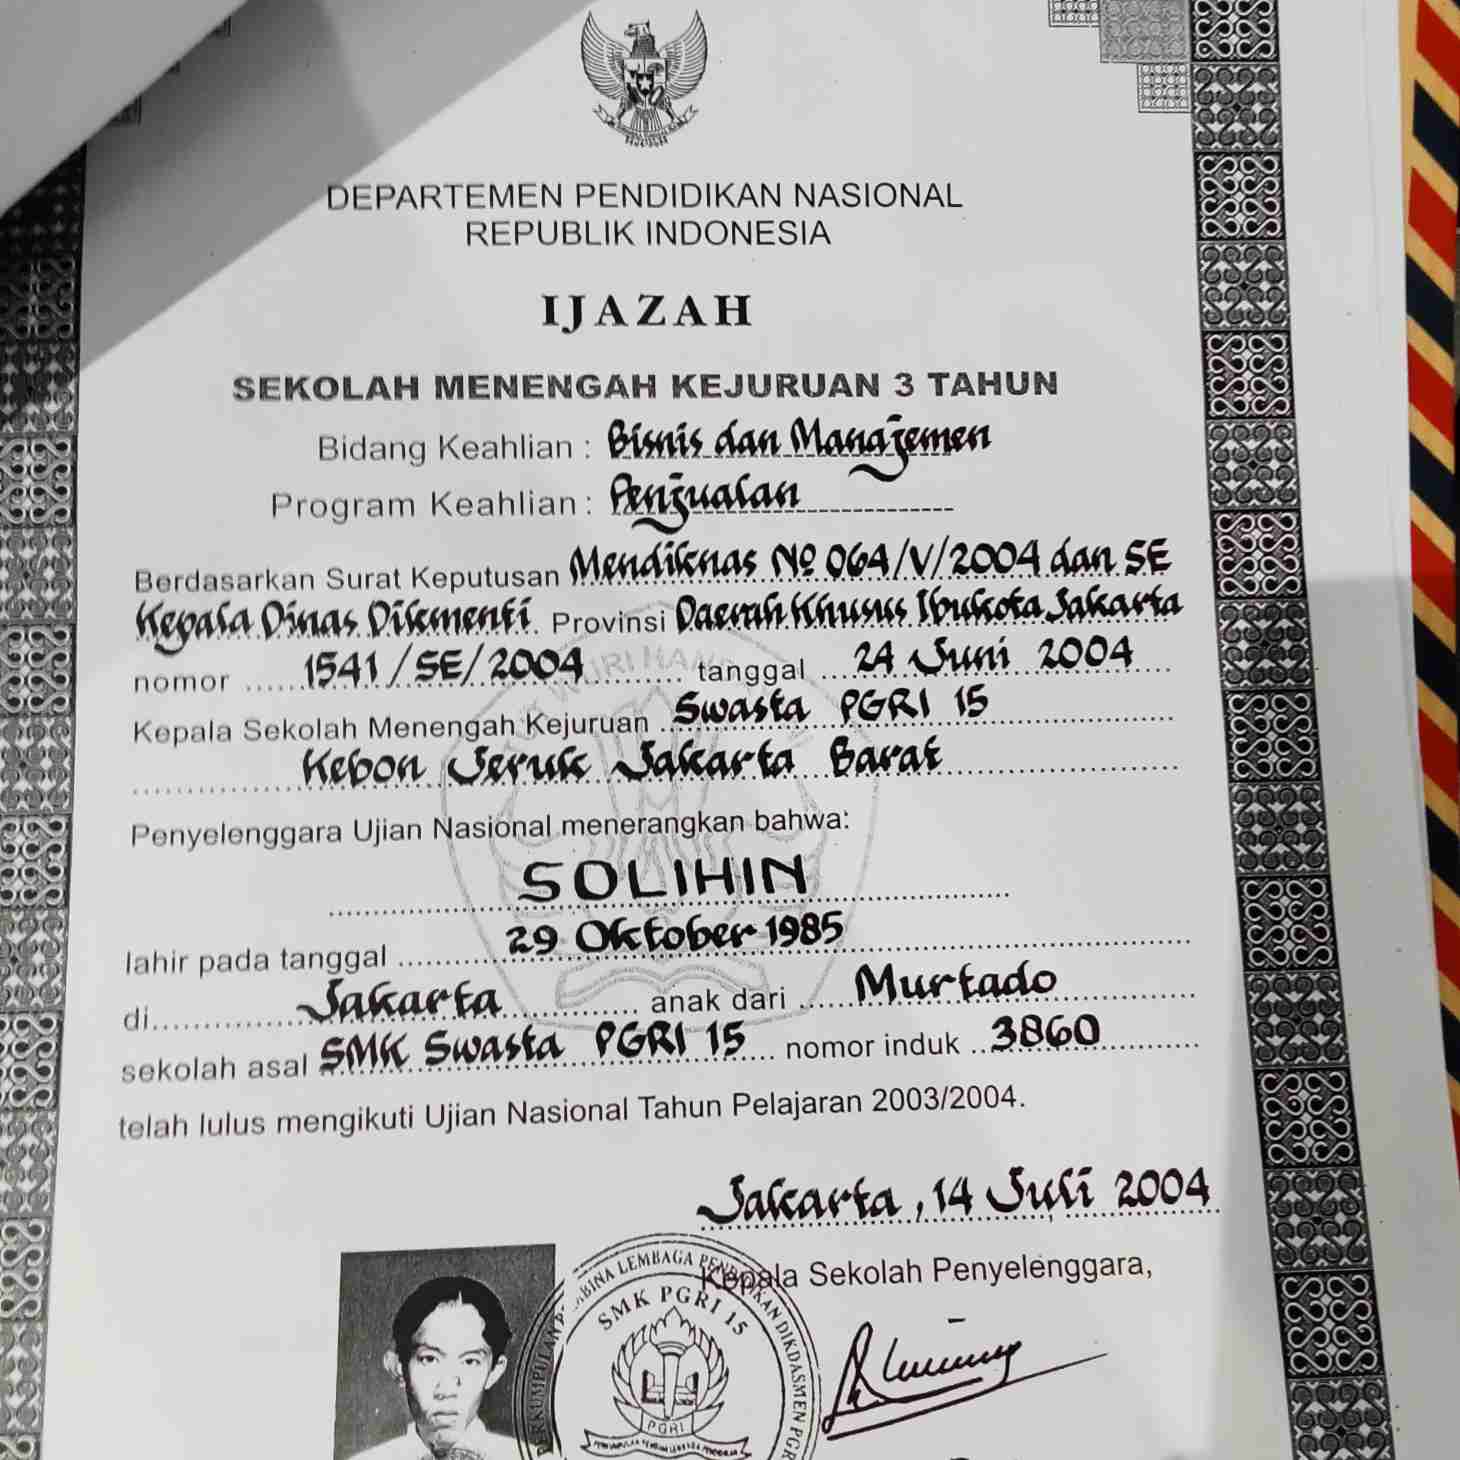 DEPARTEMEN PENDIDIKAN NASIONAL
REPUBLIK INDONESIA
IJAZAH
SEKOLAH MENENGAH KEJURUAN 3 TAHUN
Bidang Keahlian : Bisnis dan Manajemen
Program Keahlian : Penjualan
Berdasarkan Surat Keputusan Mendiknas No 064/V/2004 dan SE
Kepala Dinas Dikmenti Provinsi Daerah Khusus Ibukota Jakarta
nomor 1541/SE/2004 tanggal 24 Juni 2004
Kepala Sekolah Menengah Kejuruan Swasta PGRI 15
Kebon Jeruk Jakarta Barat
Penyelenggara Ujian Nasional menerangkan bahwa:
SOLIHIN
lahir pada tanggal 29 Oktober 1985
di Jakarta anak dari Murtado
sekolah asal SMK Swasta PGRI 15 nomor induk 3860
telah lulus mengikuti Ujian Nasional Tahun Pelajaran 2003/2004.
Jakarta, 14 Juli 2004
Kepala Sekolah Penyelenggara,
LEMBAGA PENDIDIKAN DIKDASMEN
SMK PGRI 15
PGRI